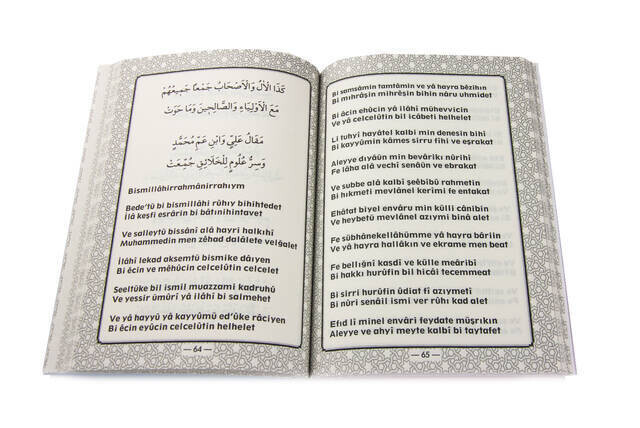 كَذَا الْاٰلُ وَالْاَصْحَابُ جَمْعًا جَمِيعُهُمْ
مَعَ الْاَوْلِيَاءِ وَالصَّالِحِينَ وَمَا حَوَتْ
مَقَالُ عَلِيٍّ وَابْنِ عَمِّ مُحَمَّدٍ
وَسِرُّ عُلُومٍ لِلْخَلَائِقِ جُمِّعَتْ
Bismillâhirrahmânirrahıym
Bede'tü bi bismillâhi rûhıy bihihtedet
İlâ keşfi esrârin bi bâtınihintavet
Ve salleytü bissâni alâ hayri halkıhî
Muhammedin men zêhad dalâlete velğalet
İlâhi lekad aksemtü bismike dâıyen
Bi êcin ve mêhûcin celcelûtin celcelet
Seeltüke bil ismil muazzami kadruhû
Ve yessir ümûrî yâ ilâhî bi salmehet
Ve yâ hayyü yâ kayyûmü ed'ûke râciyen
Bi êcin eyûcin celcelûtin helhelet
— 64 —
Bi samsâmin tamtâmin ve yâ hayra bêzihın
Bi mıhrâşin mihrêşin bihin nâru uhmidet
Bi âcin ehûcin yâ ilâhi mühevvicin
Ve yâ celcelûtin bil icâbeti helhelet
Li tuhyi hayâtel kalbi min denesin bihî
Bi kayyûmin kâmes sirru fîhi ve eşrakat
Aleyye dıyâün min bevârikı nûrihî
Fe lâha alâ vechî senâün ve ebrakat
Ve subbe alâ kalbî şeêbibü rahmetin
Bi hıkmeti mevlânel kerîmi fe entakat
Ehâtat biyel envâru min külli cânibin
Ve heybetü mevlânel azıymi binâ alet
Fe sübhânekellâhümme yâ hayra bâriin
Ve yâ hayra hallâkın ve ekrame men beat
Fe bellıgnî kasdî ve külle meâribî
Bi hakkı hurûfin bil hicâi tecemmeat
Bi sirri hurûfin ûdiat fî azıymetî
Bi nûri senâil ismi ver rûhı kad alet
Efıd lî minel envâri feydate müşrıkın
Aleyye ve ahyî meyte kalbî bi taytafet
— 65 —